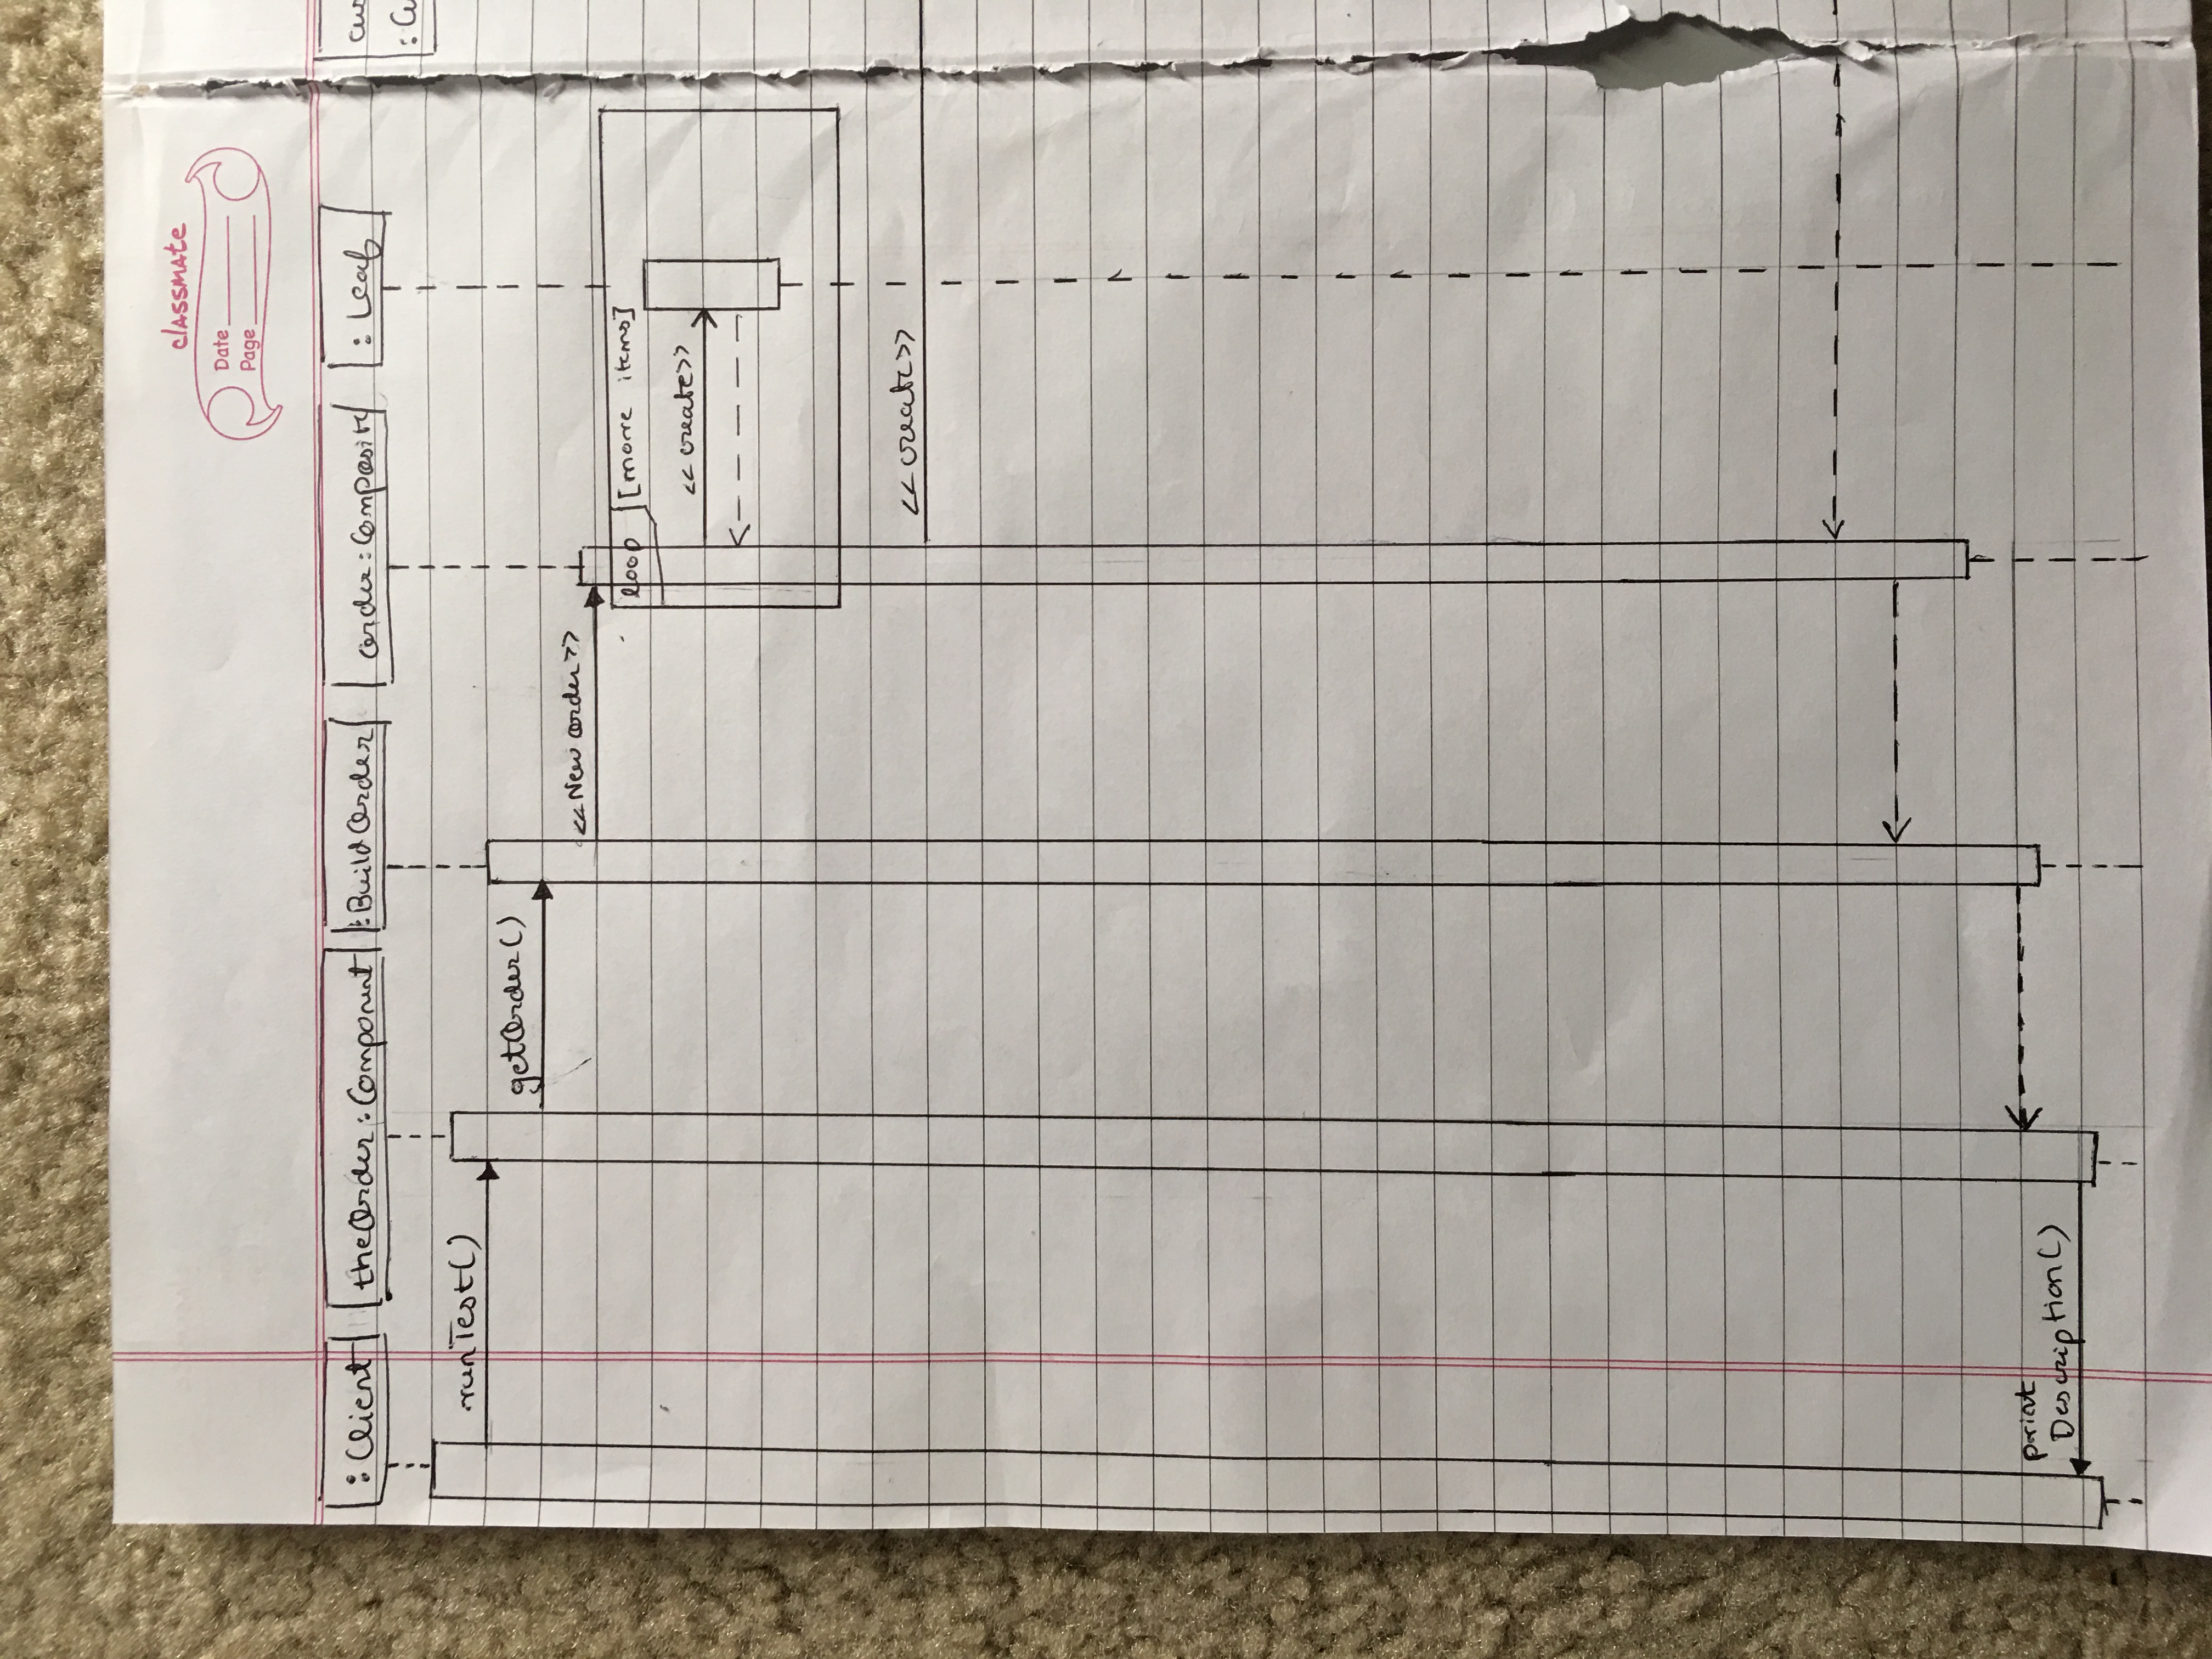 classmate
Date
Page
:Client
theOrder:Component
:BuildOrder
order:Composite
:Leaf
runTest()
getOrder()
<<New order>>
loop [more items]
<<create>>
<<create>>
print
Description()